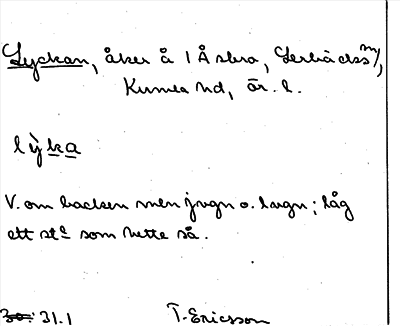 Lyckan, åker å 1 Å sbro, Lerbäcks m/,
Kumla hd, Ör. l.
lỳka
V. om backen men jvgn o. lvgn; låg
ett stº som hette så.
30: 31.1 T. Ericsson